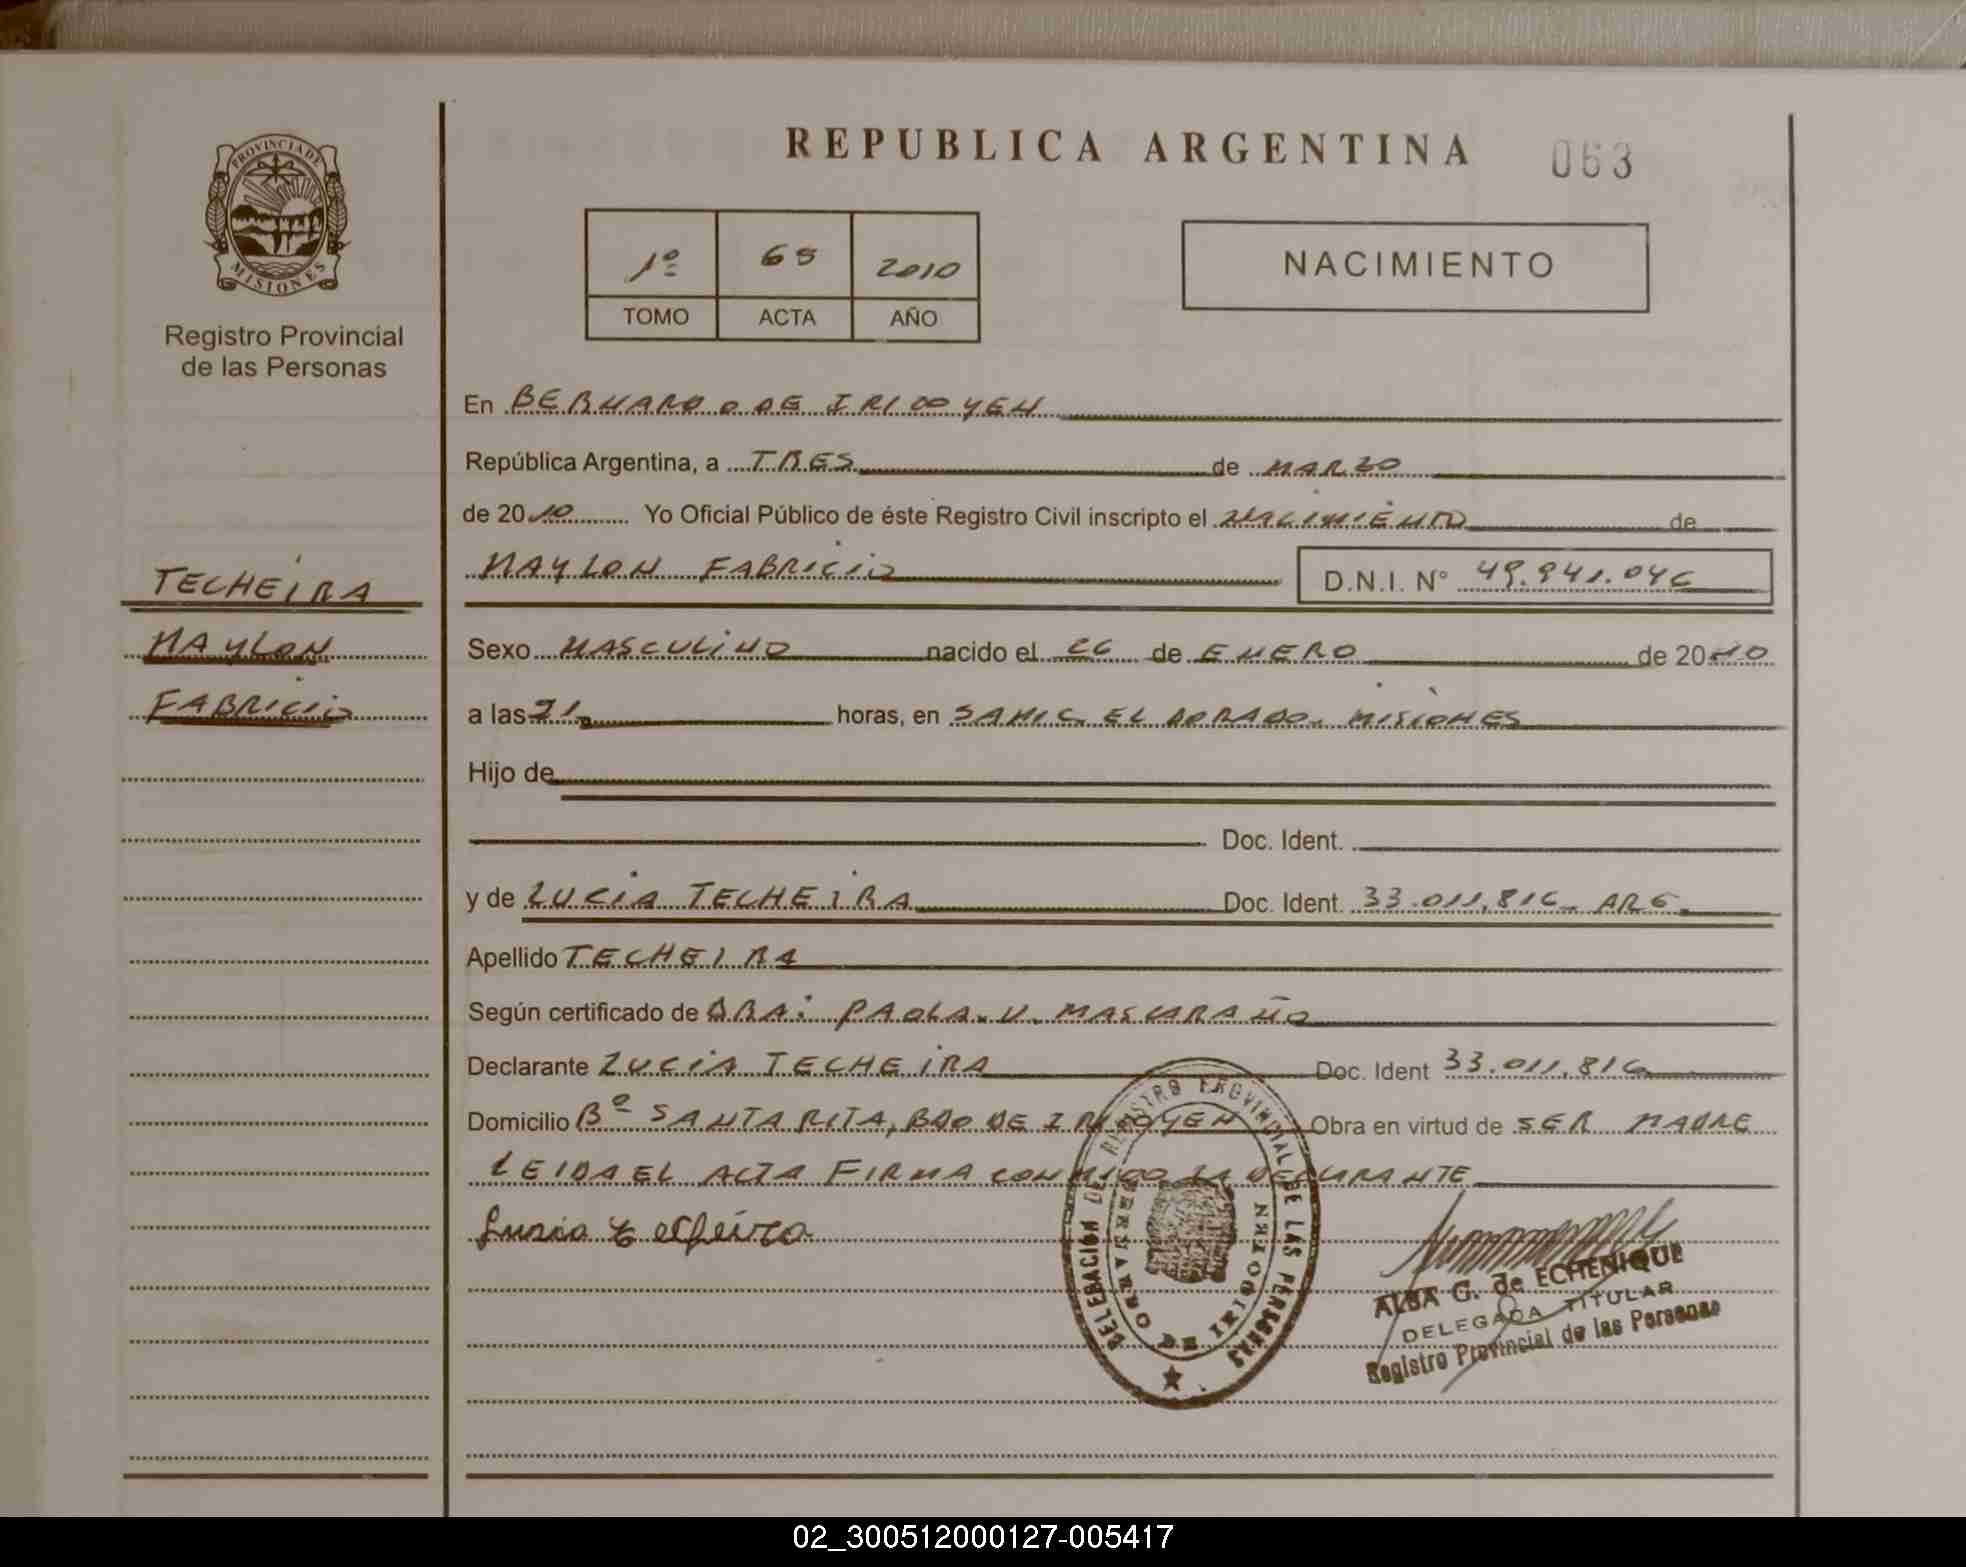 REPUBLICA ARGENTINA
063
PROVINCIA DE MISIONES
Registro Provincial
de las Personas
1º 65 2010
TOMO ACTA AÑO
NACIMIENTO
En BERNARDO DE IRIGOYEN
República Argentina, a TRES de MARZO
de 2010 Yo Oficial Público de éste Registro Civil inscripto el NACIMIENTO de
NAYLON FABRICIO D.N.I. Nº 49.941.046
TECHEIRA
NAYLON
FABRICIO
Sexo MASCULINO nacido el 26 de ENERO de 2010
a las 21 horas, en SAMIC. EL DORADO. MISIONES
Hijo de
Doc. Ident.
y de LUCIA TECHEIRA Doc. Ident. 33.011.816 ARG.
Apellido TECHEIRA
Según certificado de DRA: PAOLA. V. MASCARAÑO
Declarante LUCIA TECHEIRA Doc. Ident 33.011.816
Domicilio Bº SANTA RITA, BDO DE IRIGOYEN Obra en virtud de SER MADRE
LEIDA EL ACTA FIRMA CONMIGO LA DECLARANTE
Lucia Techeira
DELEGACION DEL REGISTRO PROVINCIAL DE LAS PERSONAS
BERNARDO DE IRIGOYEN
ALBA G. de ECHENIQUE
DELEGADA TITULAR
Registro Provincial de las Personas
02_300512000127-005417